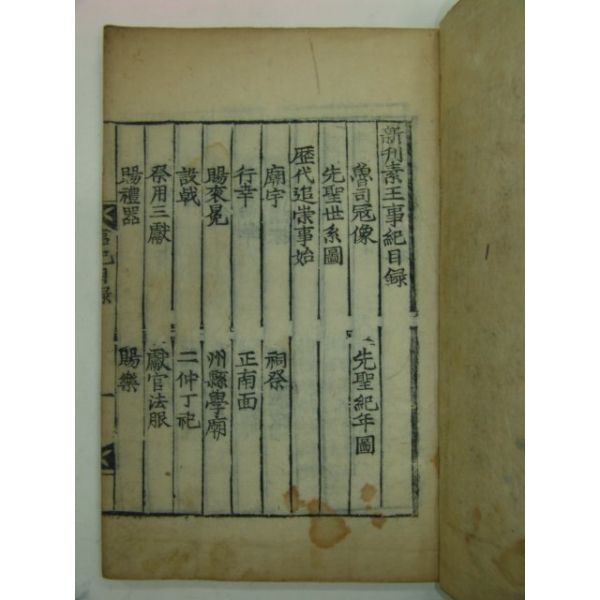 新刊素王事紀目録
魯司冠像　先聖紀年圖
先聖世系圖
歷代追崇事始
廟宇　祠祭
行幸　正南面
賜衮冕　州縣學廟
設戟　二仲丁祀
祭用三獻　獻官法服
賜禮器　賜樂
事紀目録　一